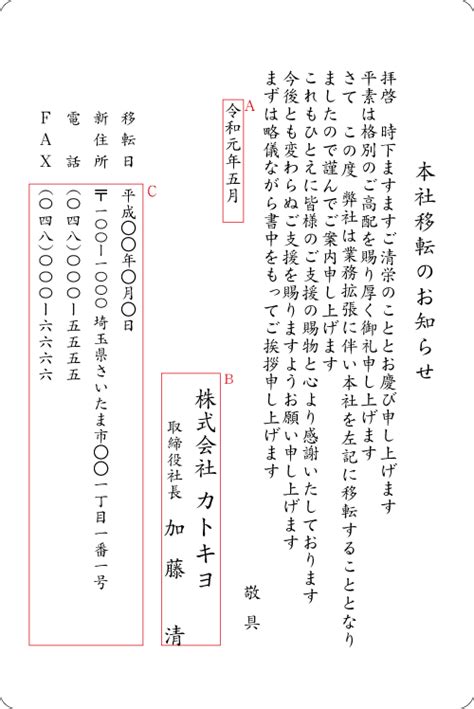 本社移転のお知らせ
拝啓　時下ますますご清栄のこととお慶び申し上げます
平素は格別のご高配を賜り厚く御礼申し上げます
さて　この度　弊社は業務拡張に伴い本社を左記に移転することとなり
ましたので謹んでご案内申し上げます
これもひとえに皆様のご支援の賜物と心より感謝いたしております
今後とも変わらぬご支援を賜りますようお願い申し上げます
まずは略儀ながら書中をもってご挨拶申し上げます
敬具
A
令和元年五月
B
株式会社 カトキヨ
取締役社長　加藤　清
C
移転日　平成〇〇年〇月〇日
新住所　〒一〇〇ー一〇〇〇 埼玉県さいたま市〇〇一丁目一番一号
電話　（〇四八）〇〇〇ー五五五五
FAX　（〇四八）〇〇〇ー六六六六